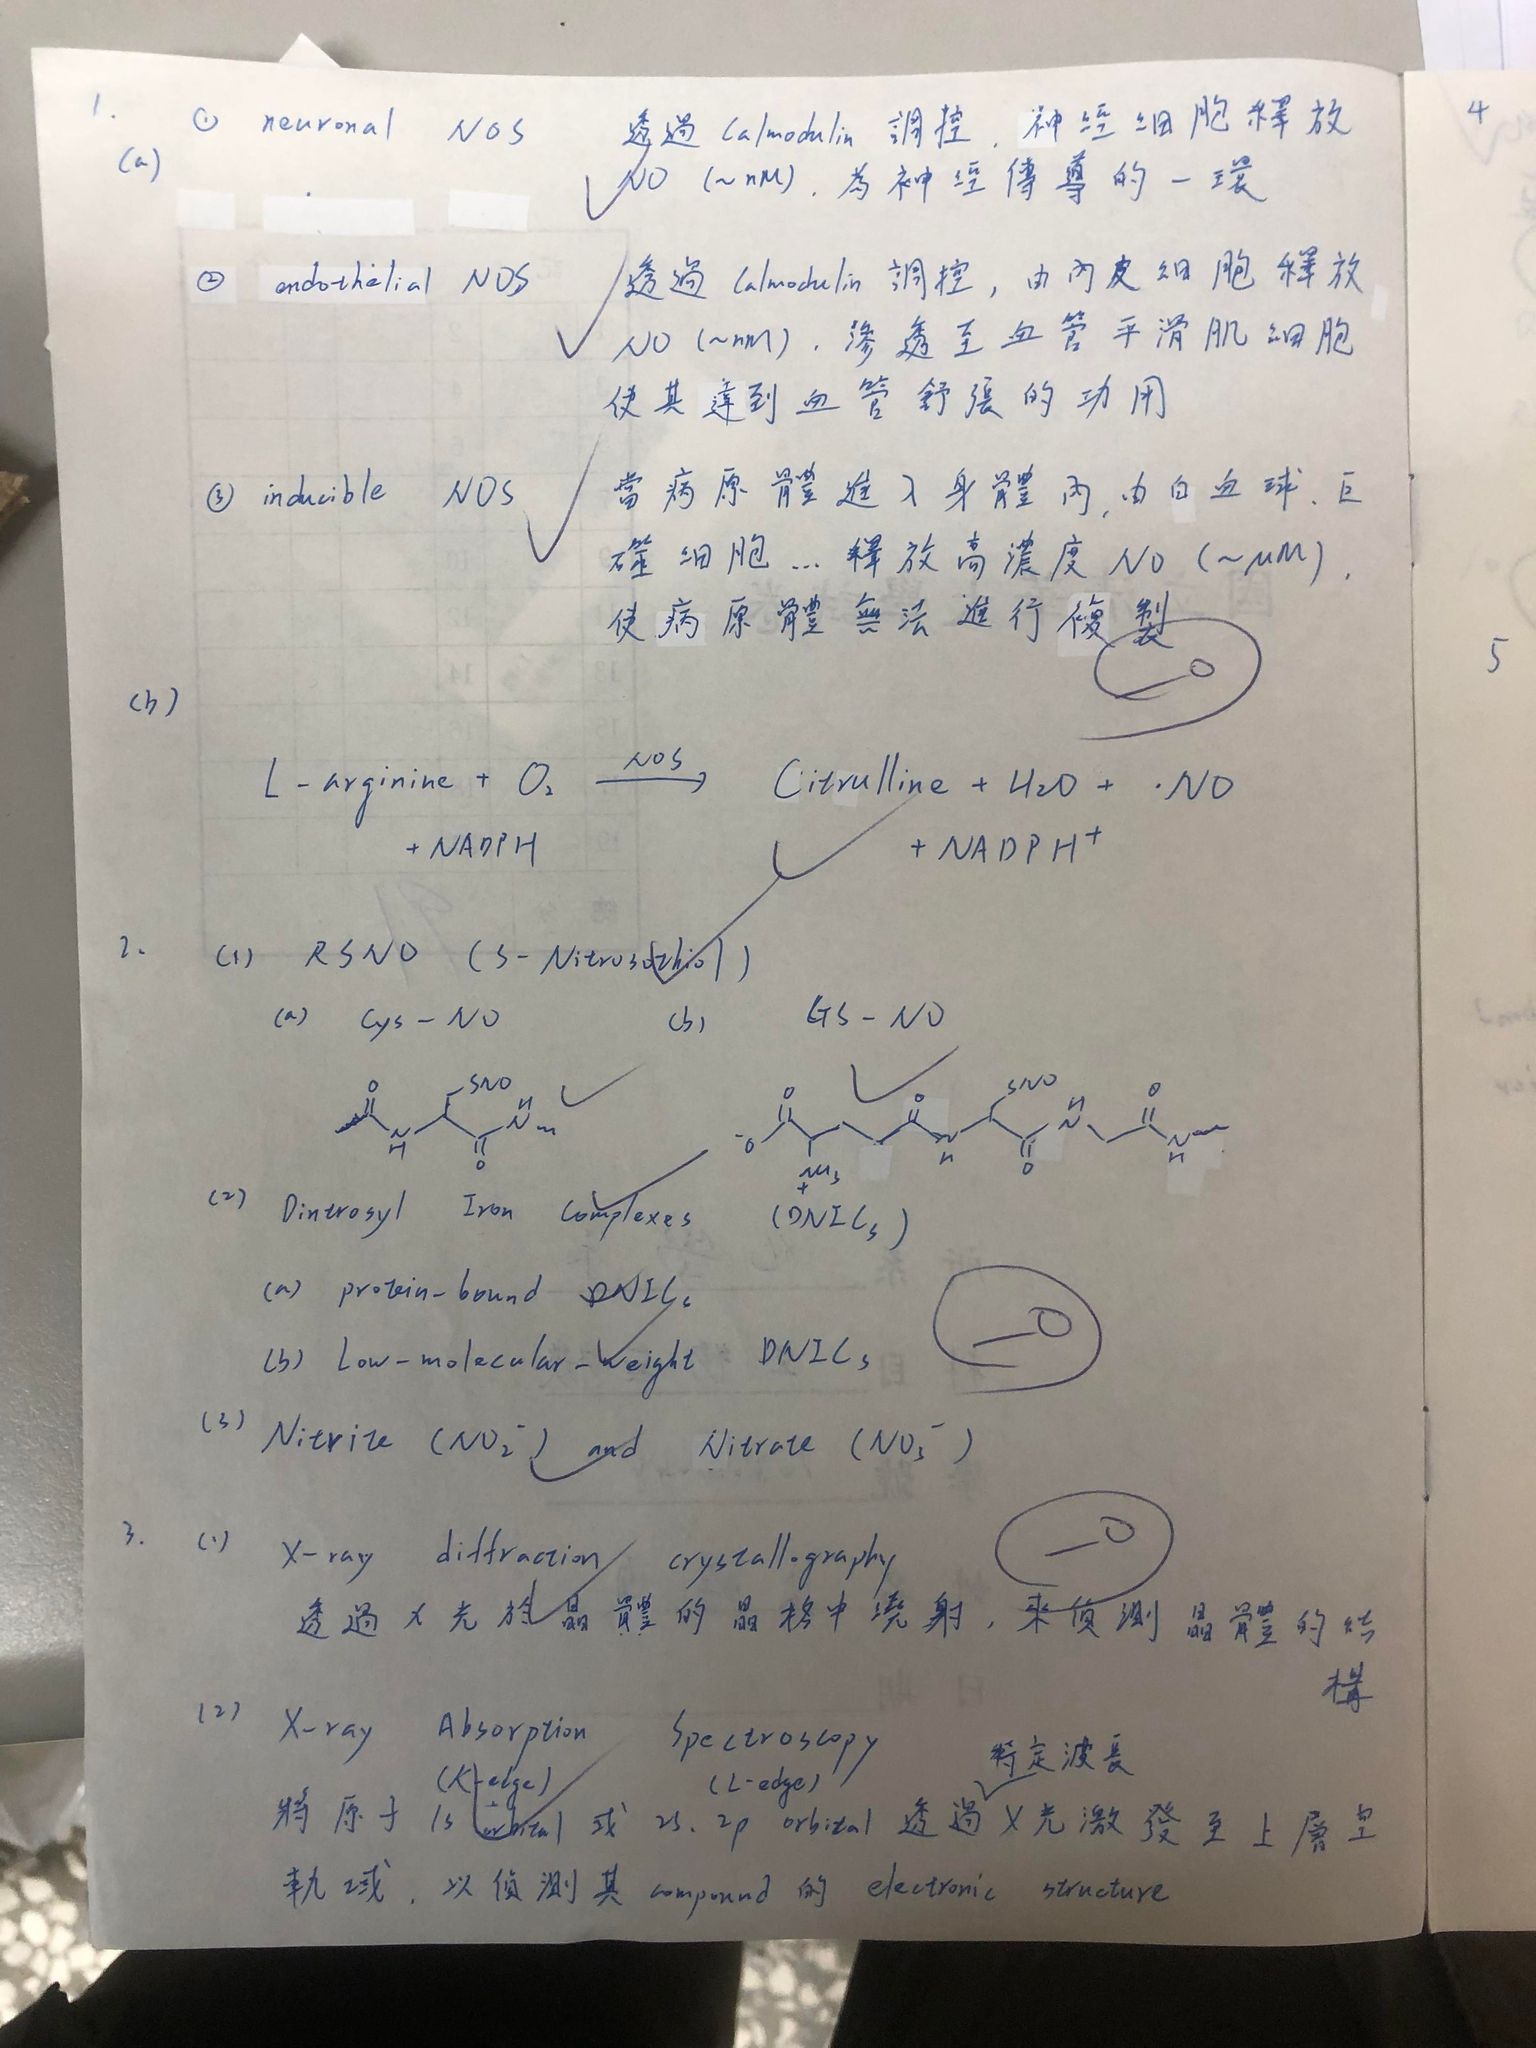 1.
(a)
① neuronal NOS 透過 Calmodulin 調控, 神經細胞釋放
NO (~nM), 為神經傳導的一環
② endothelial NOS 透過 Calmodulin 調控, 由內皮細胞釋放
NO (~nM), 滲透至血管平滑肌細胞
使其達到血管舒張的功用
③ inducible NOS 當病原體進入身體內, 由白血球、巨
噬細胞... 釋放高濃度 NO (~μM),
使病原體無法進行複製
-0
(b)
L-arginine + O₂ NOS → Citrulline + H₂O + ·NO
+ NADPH + NADPH⁺
2. (1) RSNO (S-Nitrosothiol)
(a) Cys-NO (b) GS-NO
O SNO H N N H O
⁻O O NH₃ + O N H SNO O H N O N H
(2) Dintrosyl Iron Complexes (DNICs)
(a) protein-bound DNICs
(b) Low-molecular-weight DNICs
-0
(3) Nitrite (NO₂⁻) and Nitrate (NO₃⁻)
3. (1) X-ray diffraction crystallography
-0
透過 X光於晶體的晶格中繞射, 來偵測晶體的結
構
(2) X-ray Absorption Spectroscopy
(K-edge) (L-edge) 特定波長
將原子 1s orbital 或 2s, 2p orbital 透過 X光激發至上層空
軌域, 以偵測其 compound 的 electronic structure
4
5